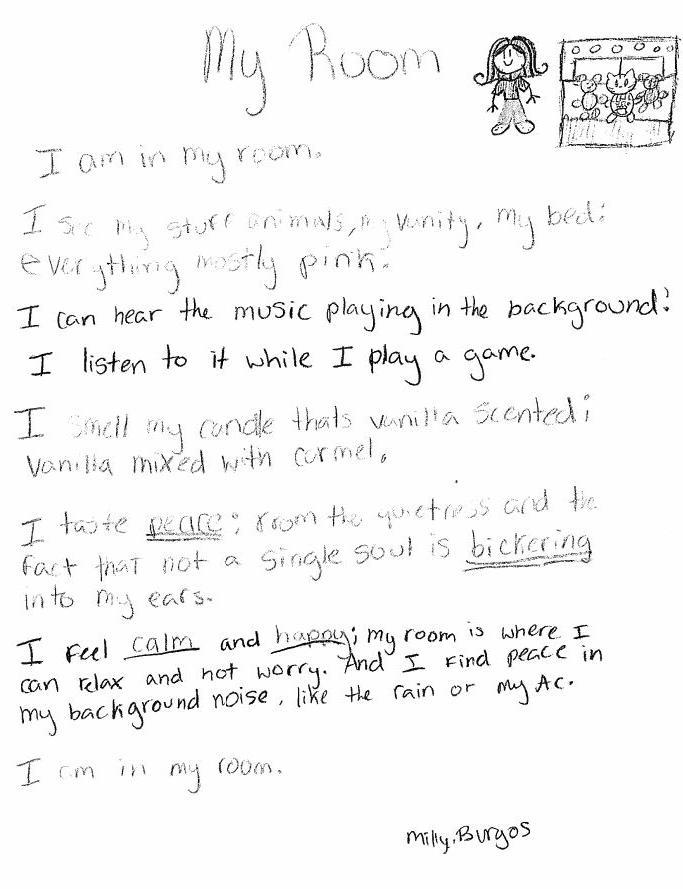 My Room
I am in my room.
I see my stuff animals, my vanity, my bed;
everything mostly pink.
I can hear the music playing in the background;
I listen to it while I play a game.
I smell my candle thats vanilla scented;
Vanilla mixed with carmel.
I taste peace; from the quietness and the
fact that not a single soul is bickering
into my ears.
I feel calm and happy; my room is where I
can relax and not worry. And I find peace in
my background noise, like the rain or my AC.
I am in my room.
Milly.Burgos